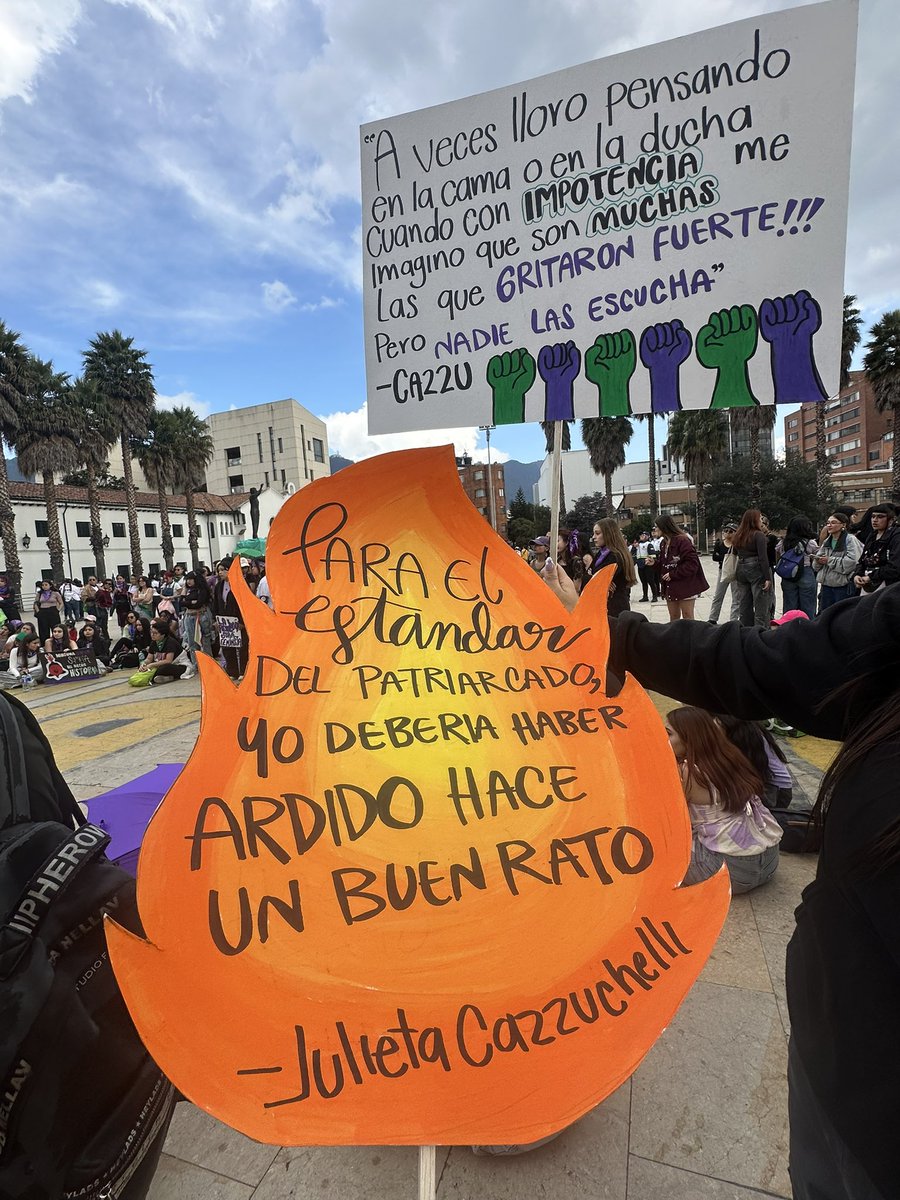 "A veces lloro pensando
en la cama o en la ducha
Cuando con IMPOTENCIA me
Imagino que son MUCHAS
Las que GRITARON FUERTE!!!
Pero NADIE LAS ESCUCHA"
-CAZZU
PARA El
estandar
DEL PATRIARCADO,
YO DEBERIA HABER
ARDIDO HACE
UN BUEN RATO
-Julieta Cazzuchelli
HISTORIA